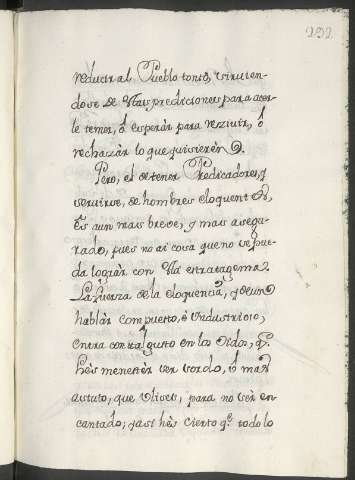 292
reducir al Pueblo tonto, sirvien-
dose de Vtas prediciones para acer-
le temer, ô esperàr para rezivir, ô
rechazàr lo que quisierèn.
Pero, el de tener Predicadores, y
servirse, de hombres eloquentes,
ês aun mas breve, y mas asegu-
rado, pues no ai cosa que no se pue-
da logràr con Vta estratagema.
La fuerza de la eloquencia, y de un
hablàr compuesto, è Industrioso,
entra con tal gusto en los Oidos, q.e
hès menestèr ser sordo, ô mas
astuto, que Vlises, para no sèr en-
cantado; y asi hès cierto q.e todo lo